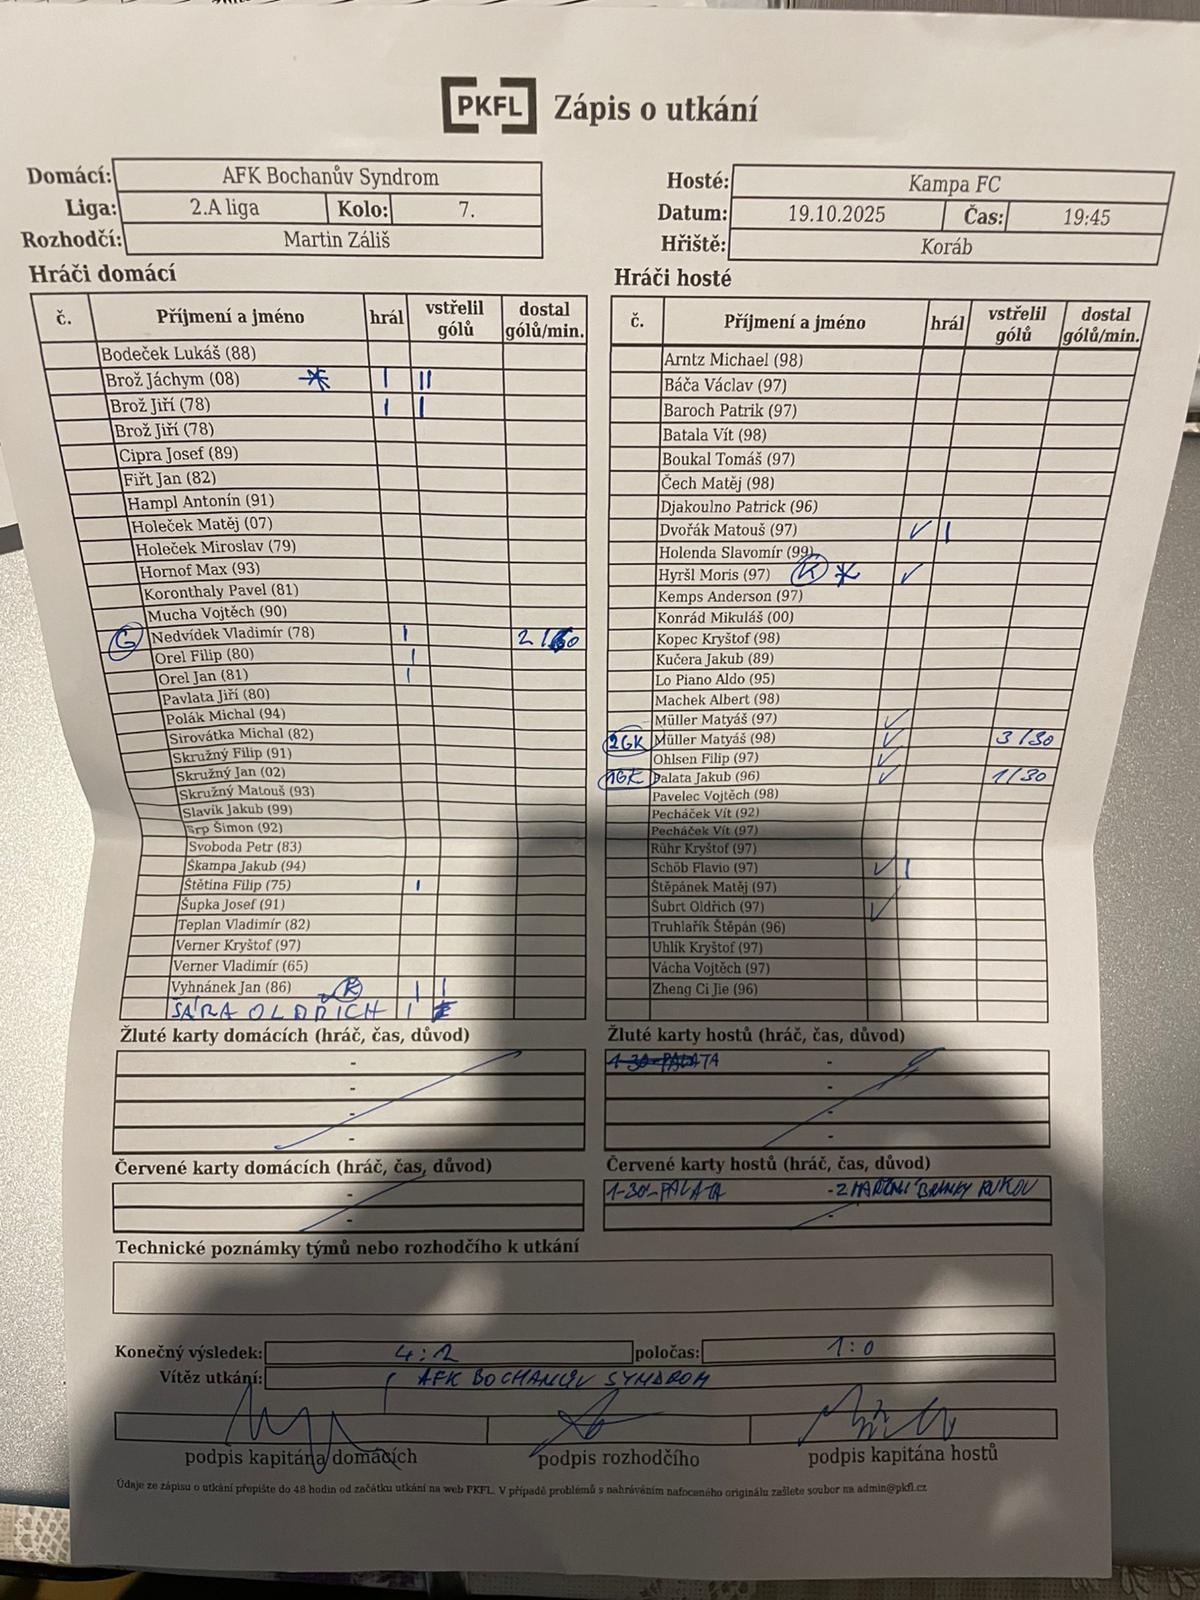 PKFL Zápis o utkání
Domácí: AFK Bochanův Syndrom
Liga: 2.A liga Kolo: 7.
Rozhodčí: Martin Záliš
Hosté: Kampa FC
Datum: 19.10.2025 Čas: 19:45
Hřiště: Koráb
Hráči domácí
č. Příjmení a jméno hrál vstřelil gólů dostal gólů/min.
Bodeček Lukáš (88)
Brož Jáchym (08) * I II
Brož Jiří (78) I I
Brož Jiří (78)
Cipra Josef (89)
Fiřt Jan (82)
Hampl Antonín (91)
Holeček Matěj (07)
Holeček Miroslav (79)
Hornof Max (93)
Koronthaly Pavel (81)
Mucha Vojtěch (90)
G Nedvídek Vladimír (78) I 2/60
Orel Filip (80) I
Orel Jan (81) I
Pavlata Jiří (80)
Polák Michal (94)
Sirovátka Michal (82)
Skružný Filip (91)
Skružný Jan (02)
Skružný Matouš (93)
Slavík Jakub (99)
Srp Šimon (92)
Svoboda Petr (83)
Škampa Jakub (94)
Štětina Filip (75) I
Šupka Josef (91)
Teplan Vladimír (82)
Verner Kryštof (97)
Verner Vladimír (65)
Vyhnánek Jan (86) K I I
ŠÁRA OLDŘICH I
Hráči hosté
č. Příjmení a jméno hrál vstřelil gólů dostal gólů/min.
Arntz Michael (98)
Báča Václav (97)
Baroch Patrik (97)
Batala Vít (98)
Boukal Tomáš (97)
Čech Matěj (98)
Djakoulno Patrick (96)
Dvořák Matouš (97) ✓ I
Holenda Slavomír (99)
Hyršl Moris (97) K * ✓
Kemps Anderson (97)
Konrád Mikuláš (00)
Kopec Kryštof (98)
Kučera Jakub (89)
Lo Piano Aldo (95)
Machek Albert (98)
Müller Matyáš (97) ✓
2GK Müller Matyáš (98) ✓ 3/30
Ohlsen Filip (97) ✓
1GK Palata Jakub (96) ✓ 1/30
Pavelec Vojtěch (98)
Pecháček Vít (92)
Pecháček Vít (97)
Rühr Kryštof (97)
Schöb Flavio (97) ✓ I
Štěpánek Matěj (97)
Šubrt Oldřich (97) ✓
Truhlařík Štěpán (96)
Uhlík Kryštof (97)
Vácha Vojtěch (97)
Zheng Ci Jie (96)
Žluté karty domácích (hráč, čas, důvod)
-
-
-
-
Žluté karty hostů (hráč, čas, důvod)
1-30-PALATA -
-
-
-
Červené karty domácích (hráč, čas, důvod)
-
-
Červené karty hostů (hráč, čas, důvod)
1-30-PALATA - BRANKY RUKOU
-
Technické poznámky týmů nebo rozhodčího k utkání
Konečný výsledek: 4:2 poločas: 1:0
Vítěz utkání: AFK BOCHANŮV SYNDROM
podpis kapitána domácích podpis rozhodčího podpis kapitána hostů
Údaje ze zápisu o utkání přepište do 48 hodin od začátku utkání na web PKFL. V případě problémů s nahráváním nafoceného originálu zašlete soubor na admin@pkfl.cz